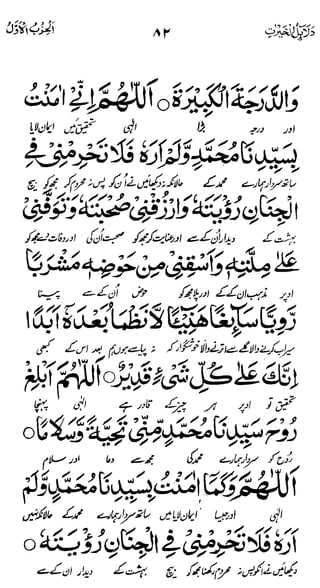 دلائل الخيرات ٨٢ الحزب الاول
وَالدَّرَجَةَ الْكَبِيْرَةَ ○ اَللّٰهُمَّ اِنِّىْ اٰمَنْتُ
اور درجہ بڑا الہٰی تحقیق میں ایمان لایا
بِسَيِّدِنَا مُحَمَّدٍ وَّلَمْ اَرَهٗ فَلَا تَحْرِمْنِىْ فِى
ساتھ سردار ہمارے محمد کے حالانکہ نہ دیکھا میں نے اُن کو پس نہ محروم کر مجھ کو بیچ
الْجِنَانِ رُؤْيَتَهٗ وَارْزُقْنِىْ صُحْبَتَهٗ وَتَوَفَّنِىْ
بہشت کے دیدار اُن کے سے اور عنایت کر مجھ کو صحبت اُن کی اور وفات دے مجھ کو
عَلٰى مِلَّتِهٖ وَاسْقِنِىْ مِنْ حَوْضِهٖ مَشْرَبًا
اوپر مذہب اُن کے کے اور پلا مجھ کو حوض اُن کے سے پینا
رَّوِيًّا سَآئِغًا هَنِيْٓئًا لَّا نَظْمَأُ بَعْدَهٗٓ اَبَدًا
سیراب کرنے والا گلے سے اترنے والا خوشگوار کہ نہ پیاسے ہوں ہم بعد اس کے کبھی
اِنَّكَ عَلٰى كُلِّ شَىْءٍ قَدِيْرٌ ○ اَللّٰهُمَّ اَبْلِغْ
تحقیق تو اوپر ہر چیز کے قادر ہے الہٰی پہنچا
رُوْحَ سَيِّدِنَا مُحَمَّدٍ مِّنِّىْ تَحِيَّةً وَّسَلَامًا ○
رُوح کو سردار ہمارے محمد کی مجھ سے دعا اور سلام
اَللّٰهُمَّ وَكَمَآ اٰمَنْتُ بِسَيِّدِنَا مُحَمَّدٍ وَّلَمْ
الہٰی اور جیسا ایمان لایا میں ساتھ سردار ہمارے محمد کے حالانکہ نہیں
اَرَهٗ فَلَا تَحْرِمْنِىْ فِى الْجِنَانِ رُؤْيَتَهٗ ○
دیکھا میں نے انکو پس نہ محروم کر مجھ کو بیچ بہشت کے دیدار ان کے سے